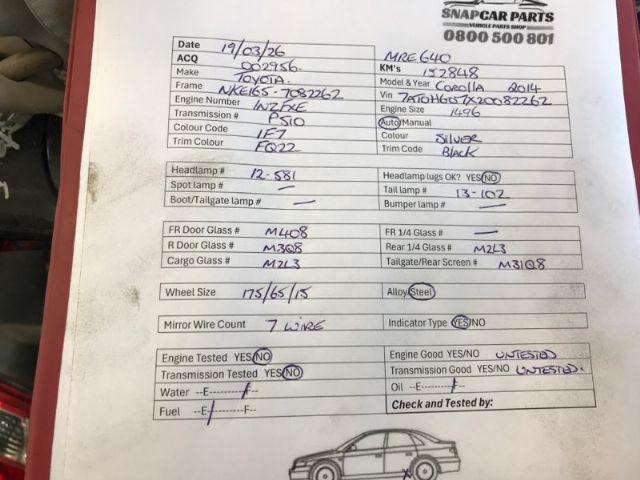 SNAPCAR PARTS
VEHICLE PARTS SHOP
0800 500 801
Date 19/03/26 MRE640
ACQ 002956. KM's 152848
Make TOYOTA. Model & Year COROLLA 2014
Frame NKE165-7082262 Vin 7AT0H65TX20082262
Engine Number 1NZFXE Engine Size 1496
Transmission # P510 Auto/Manual
Colour Code 1F7 Colour SILVER
Trim Colour FQ22 Trim Code BLACK
Headlamp # 12-581 Headlamp lugs OK? YES/NO
Spot lamp # — Tail lamp # 13-102
Boot/Tailgate lamp # — Bumper lamp # —
FR Door Glass # M408 FR 1/4 Glass # —
R Door Glass # M3Q8 Rear 1/4 Glass # M2L3
Cargo Glass # M2L3 Tailgate/Rear Screen # M31Q8
Wheel Size 175/65/15 Alloy/Steel
Mirror Wire Count 7 WIRE Indicator Type YES/NO
Engine Tested YES/NO Engine Good YES/NO UNTESTED
Transmission Tested YES/NO Transmission Good YES/NO UNTESTED.
Water --E----------F--- Oil --E----------F---
Fuel --E----------F-- Check and Tested by:
X